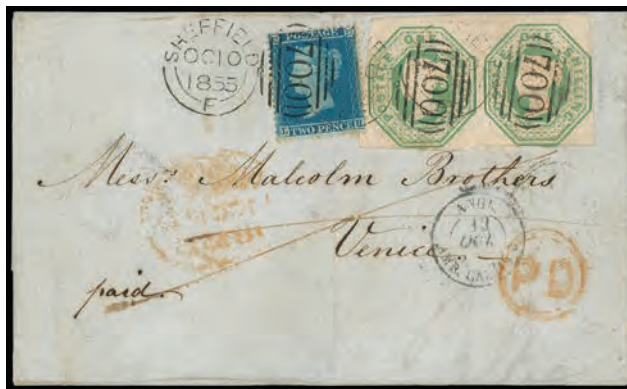 SHEFFIELD
OC 10
1855
F
POSTAGE
TWO PENCE
700
POSTAGE ONE SHILLING
700
POSTAGE ONE SHILLING
700
Messrs Malcolm Brothers
Venice
paid.
ANGL.
13
OCT.
PD